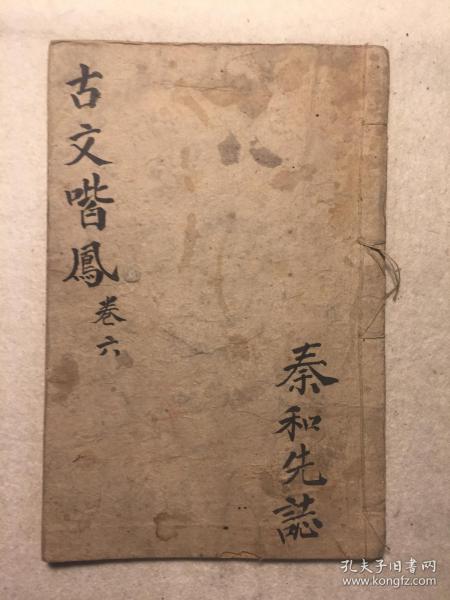 古文喈鳳
卷六
秦和先誌
孔夫子旧书网
www.kongfz.com